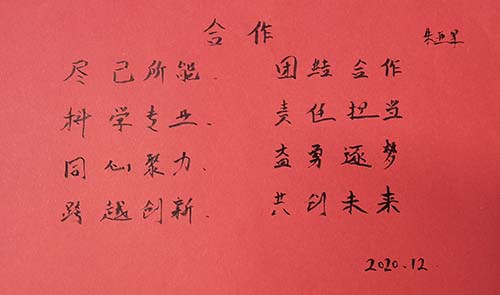 合作
尽己所能. 团结合作
科学专业. 责任担当
同心聚力. 奋勇逐梦
跨越创新. 共创未来
2020.12